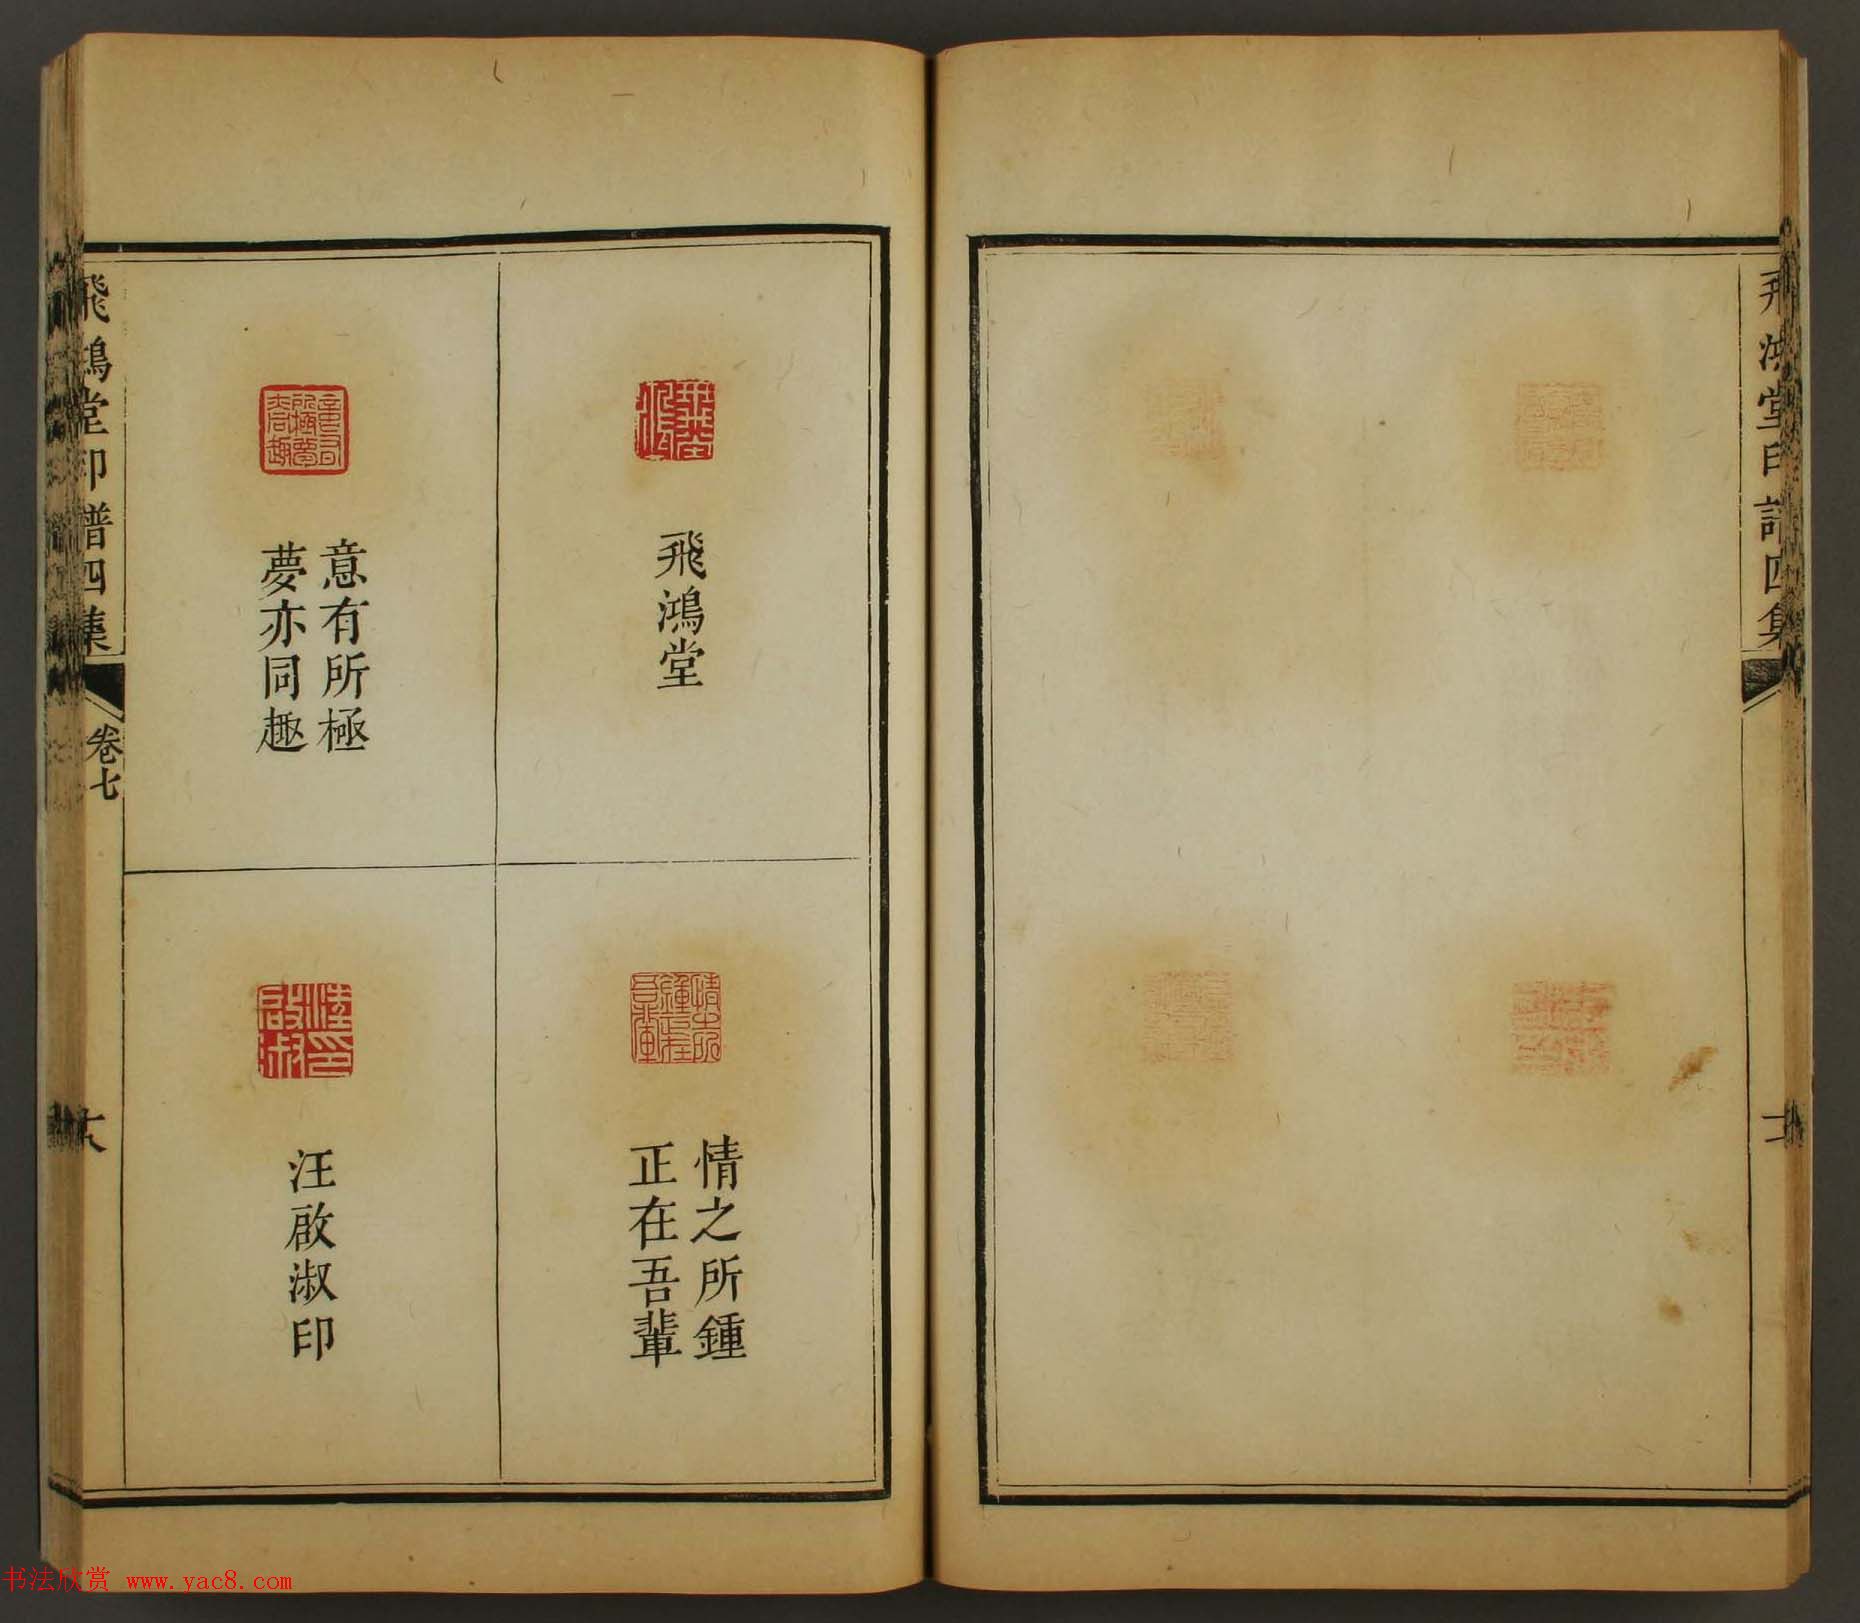 飛鴻堂印譜四集
飛鴻堂
意有所極
夢亦同趣
情之所鍾
正在吾輩
汪啟淑印
飛鴻堂印譜四集
卷七
書法欣赏 www.yac8.com